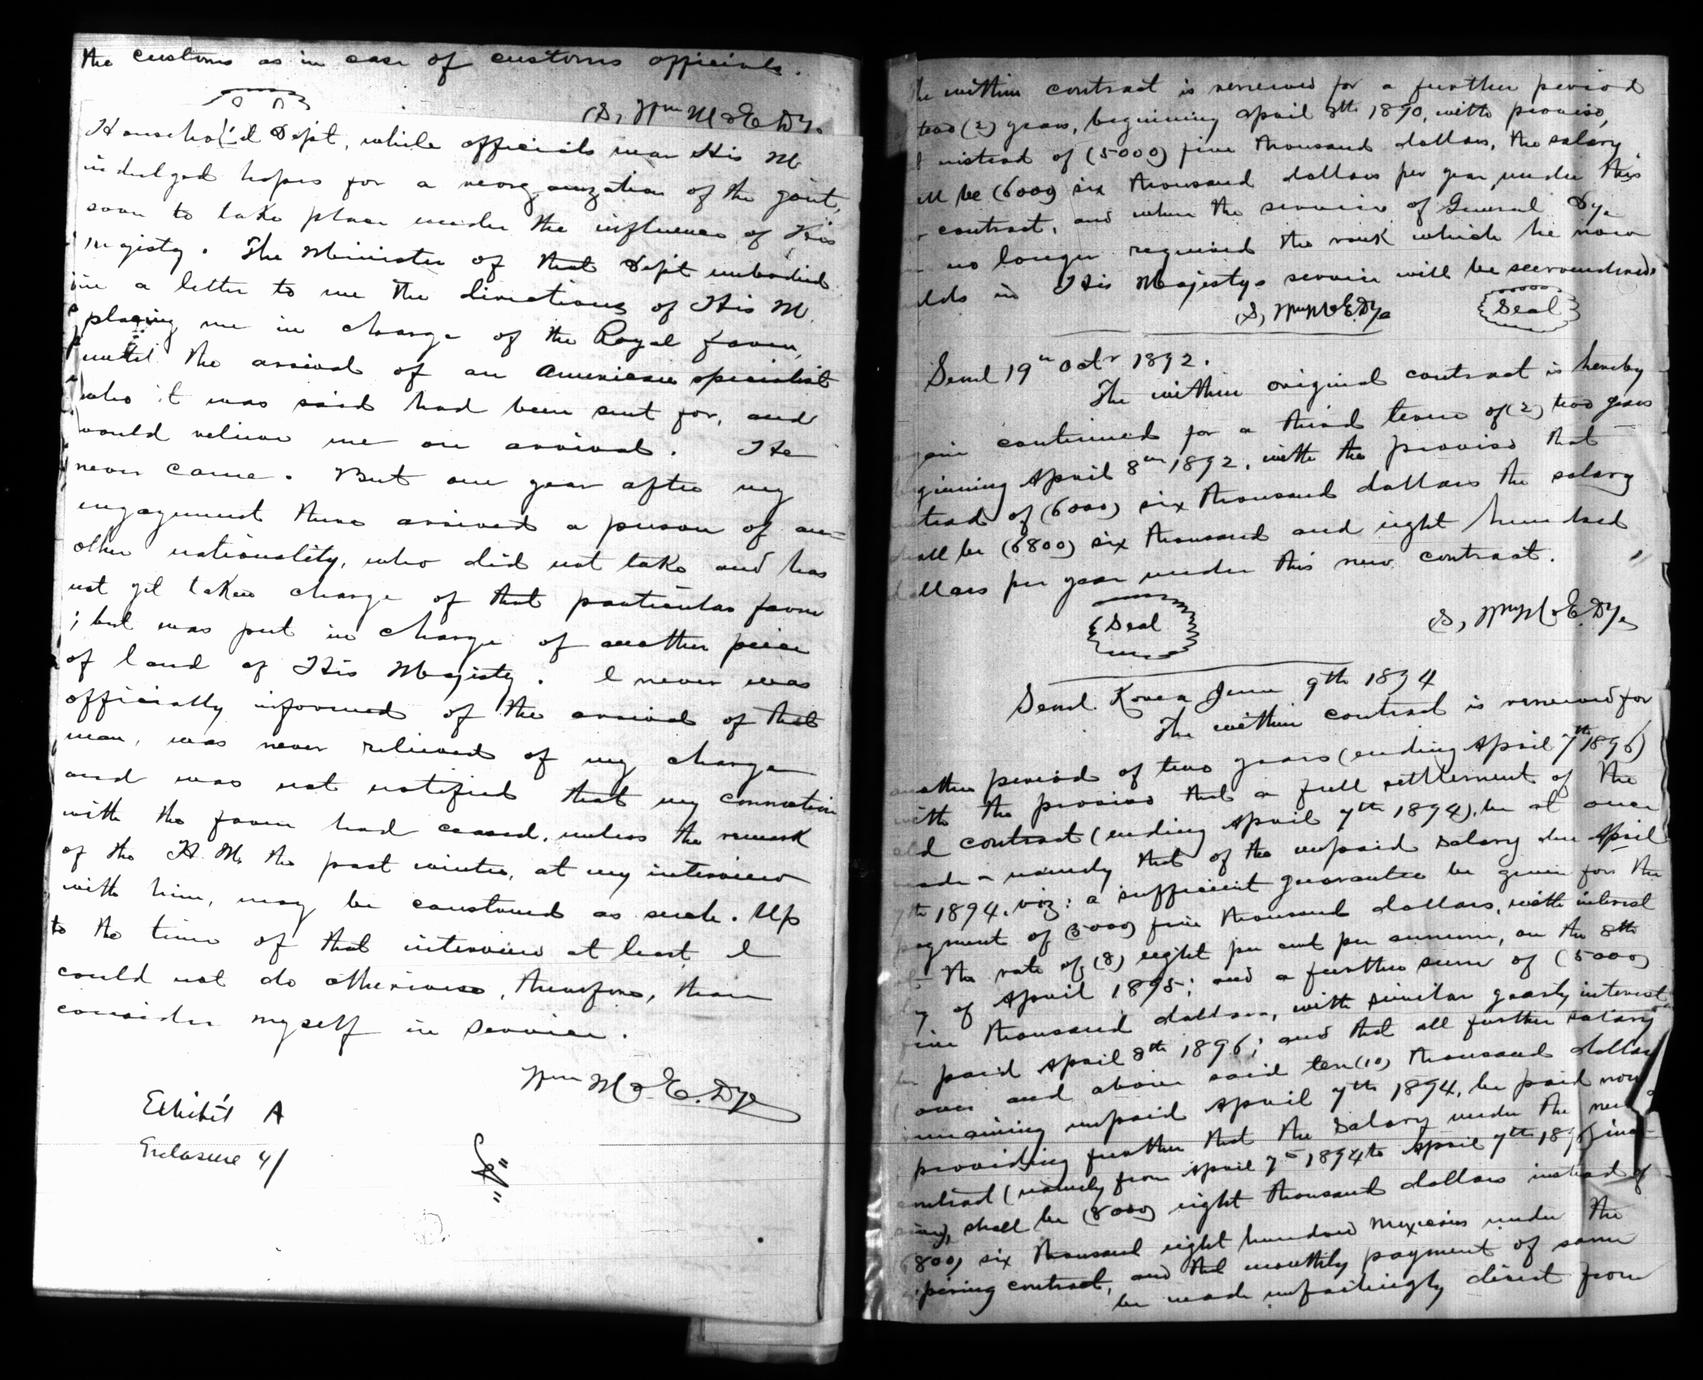 the customs as in case of customs officials.
(S, Wm McE. Dye
Househo[l]'d Dept, while officials near His M
indulged hopes for a reorganization of the govt,
soon to take place under the influence of His
Majesty. The Minister of that Dept embodied
in a letter to me the directions of His M.
placing me in charge of the Royal farm,
until the arrival of an American specialist
who it was said had been sent for, and
would relieve me on arrival. He
never came. But one year after my
engagement there arrived a person of an=
other nationality, who did not take and has
not yet taken charge of that particular farm
; but was put in charge of another piece
of land of His Majesty. I never was
officially informed of the arrival of that
man, was never relieved of my charge
and was not notified that my connection
with the farm had ceased, unless the remark
of the H. M. the past winter, at my interview
with him, may be construed as such. Up
to the time of that interview at least, I
could not do otherwise, therefore, than
consider myself in service.
Wm McE. Dye
Exhibit A
Enclosure 4/
the within contract is renewed for a further period
two (2) years, beginning April 8th 1890, with proviso,
instead of (5000) five thousand dollars, the salary
ill be (6000) six thousand dollars per year under this
contract, and when the service of General Dye
no longer required the rank which he now
lds in His Majestys service will be surrendered
(S, Wm McE. Dye
Seal
Seoul 19th Octr 1892.
The within original contract is hereby
gain continued for a third term of (2) two years
ginning April 8th 1892, with the proviso that
stead of (6000) six thousand dollars the salary
hall be (6800) six thousand and eight hundred
dollars per year under this new contract.
Seal
(S, Wm McE. Dye
Seoul. Korea June 9th 1894
The within contract is renewed for
another period of two years (ending April 7th 1896)
with the proviso that a full settlement of the
old contract (ending April 7th 1894), be at once
made - namely that of the unpaid salary due April
7th 1894, viz: a sufficient guarantee be given for the
payment of (5000) five thousand dollars, with interest
at the rate of (8) eight per cent per annum, on the 8th
of April 1895; and a further sum of (5000)
five thousand dollars, with similar yearly interest
be paid April 8th 1896; and that all further salary
over and above said ten (10) thousand dollars
remaining unpaid April 7th 1894, be paid now
providing further that the salary under the new
contract (namely from April 7th 1894 to April 7th 1896
shall be (8000) eight thousand dollars instead of
6800, six thousand eight hundred Mexicans under the
piring contract, and that monthly payment of same
be made unfailingly direct from